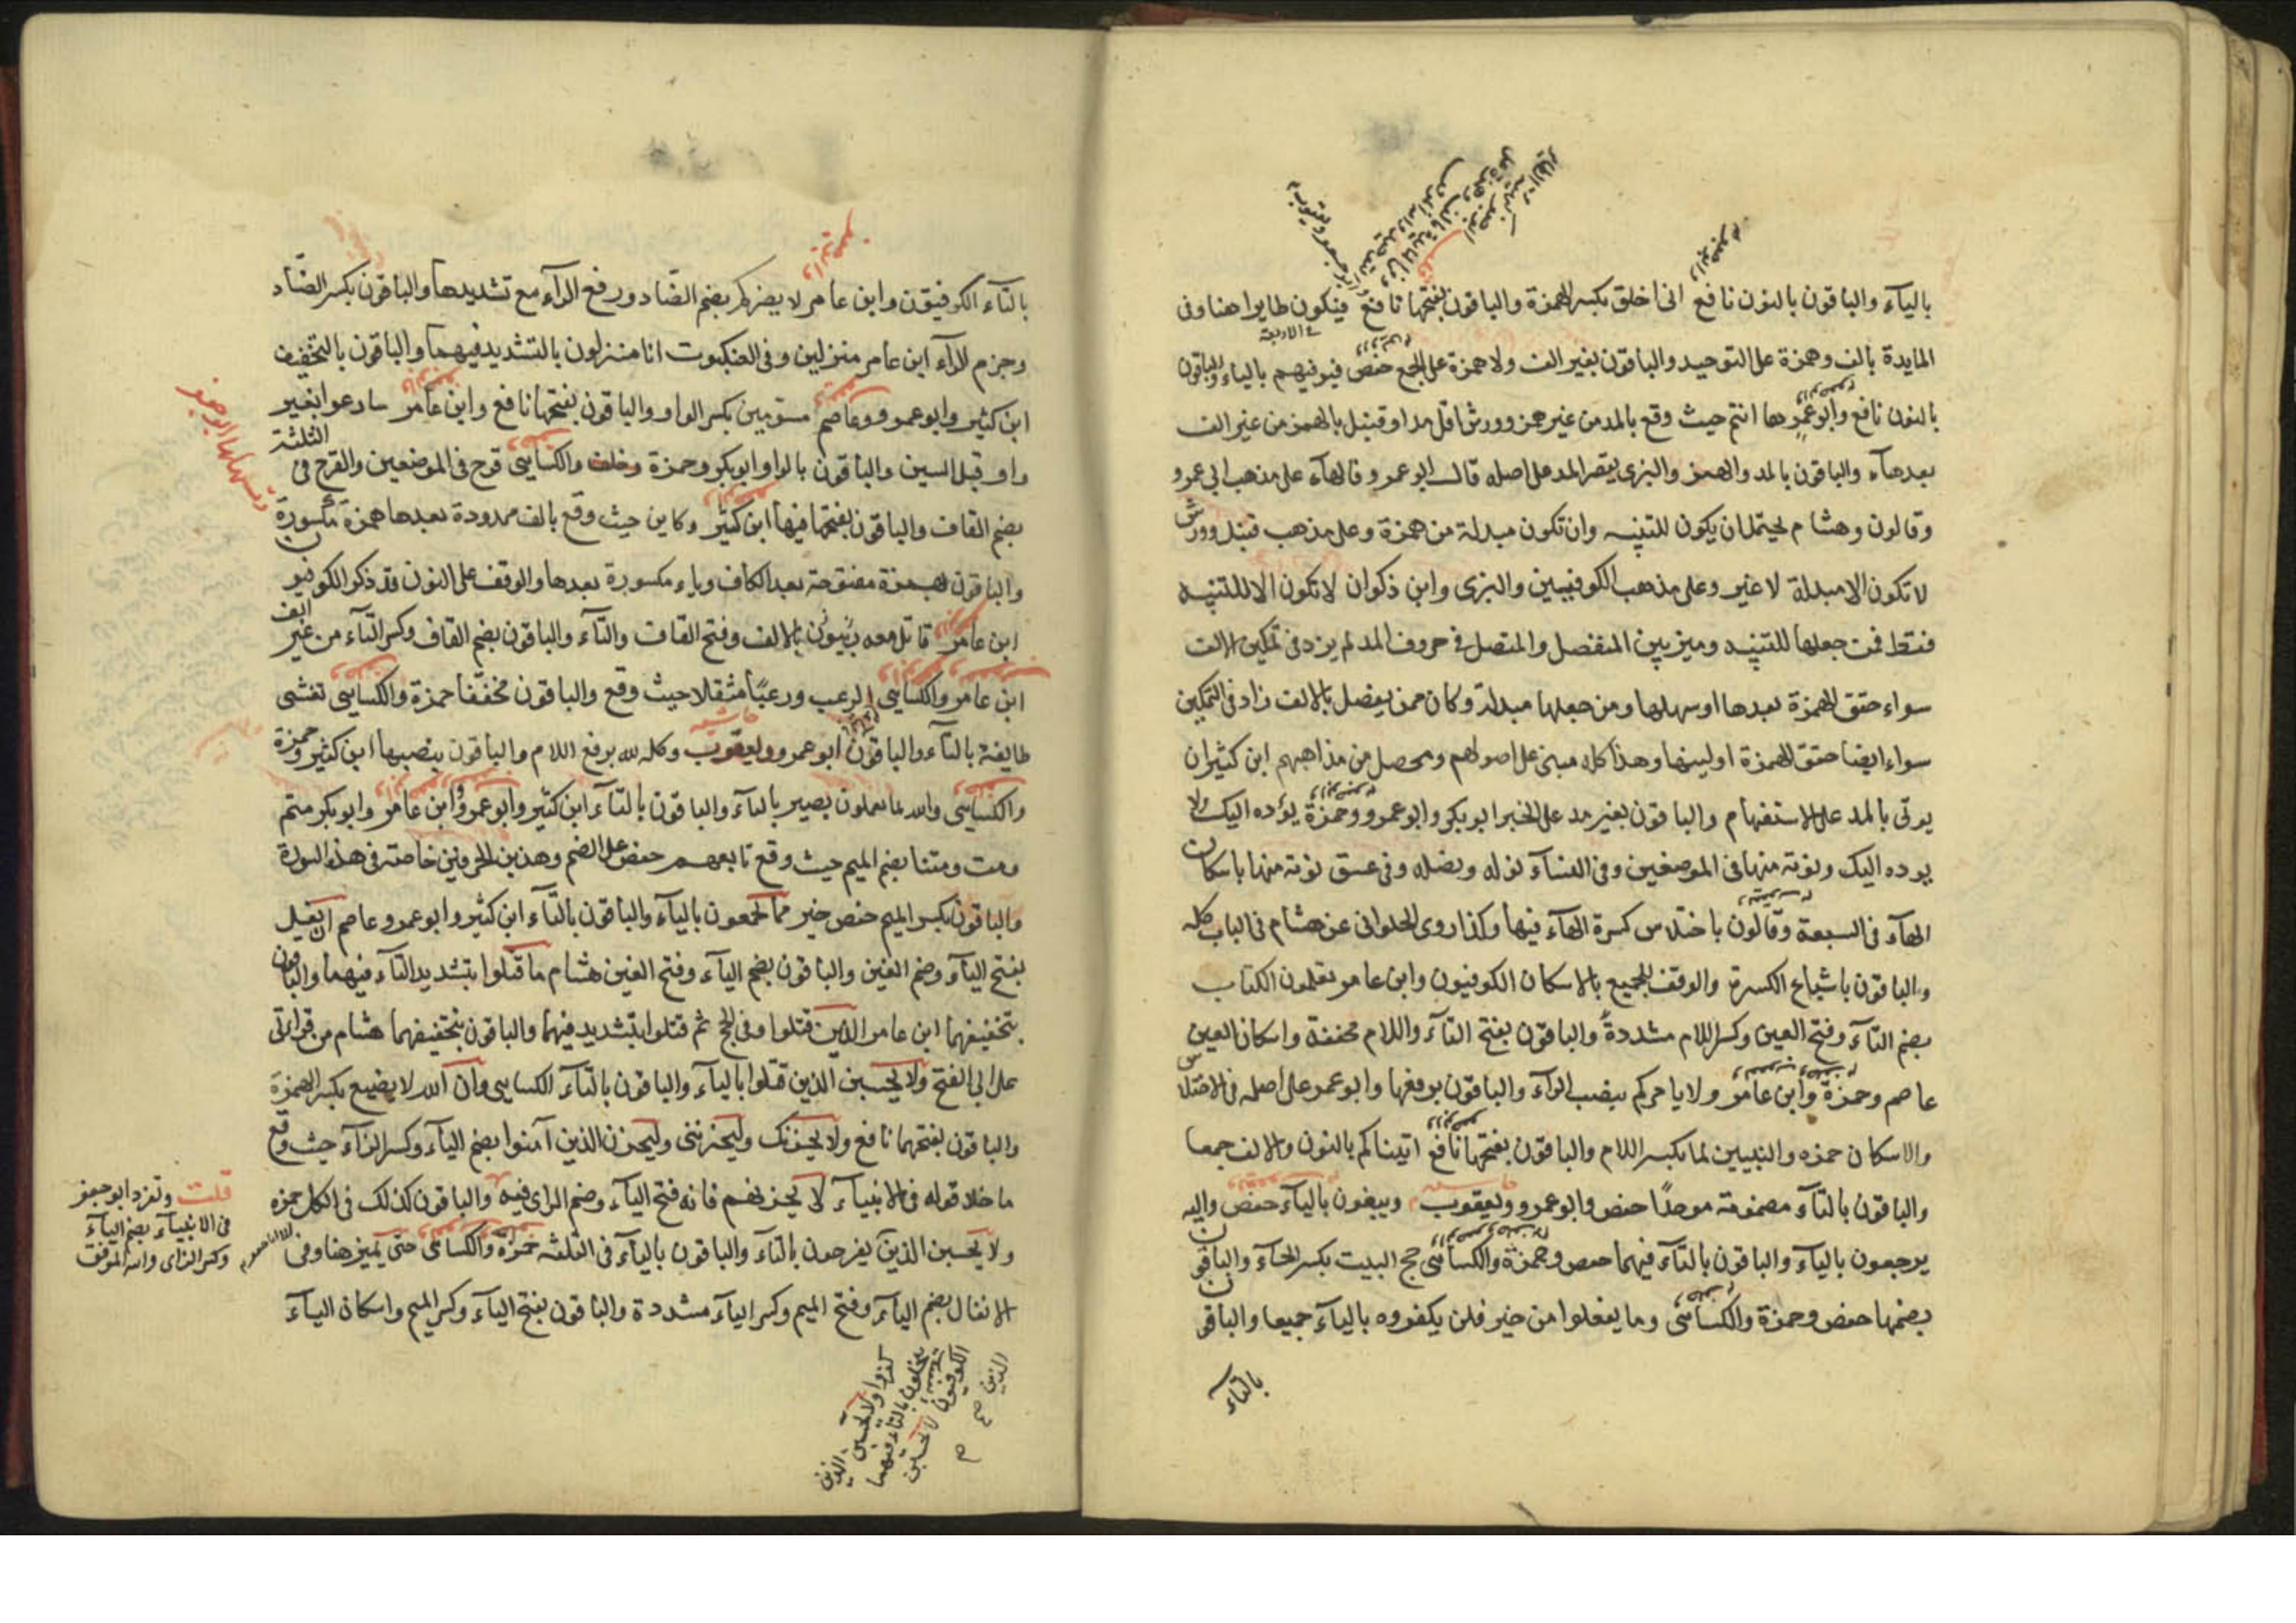 بالياء والباقون بالنون نافع انى اخلق بكسر الهمزة والباقون بفتحها نافع فيكون طايرا هنا وفى
المايدة بالف وهمزة على التوحيد والباقون بغير الف ولا همزة على الجمع حفص فيوفيهم بالياء والباقون
بالنون نافع وابو عمرو ها انتم حيث وقع بالمد من غير همز وورش اقل مدا وقنبل بالهمز من غير الف
بعد هاء والباقون بالمد والهمز والبزى يقصر المد على اصله قال ابو عمرو فالهاء على مذهب ابى عمرو
وقالون وهشام يحتمل ان يكون للتنبيه وان تكون مبدلة من همزة وعلى مذهب قنبل وورش
لا تكون الا مبدلة لا غير وعلى مذهب الكوفيين والبزى وابن ذكوان لا تكون الا للتنبيه
فقط فمن جعلها للتنبيه وميز بين المنفصل والمتصل فى حروف المد لم يزد فى تمكين الالف
سواء حقق الهمزة بعدها او سهلها ومن جعلها مبدلة وكان ممن يفصل بالالف زاد فى التمكين
سواء ايضا حقق الهمزة او لينها وهذا كله مبنى على اصولهم ومحصل من مذاهبهم ابن كثير ان
يوتى بالمد على الاستفهام والباقون بغير مد على الخبر ابو بكر وابو عمرو وحمزة يؤده اليك ولا
يوده اليك ونوته منها فى الموضعين وفى النساء نوله ونصله وفى عسق نوته منها باسكان
الهاء فى السبعة وقالون باختلاس كسرة الهاء فيها وكذا روى الحلوانى عن هشام فى الباب كله
والباقون باشباع الكسرة والوقف للجميع بالاسكان الكوفيون وابن عامر تعلمون الكتاب
بضم التاء وفتح العين وكسر اللام مشددة والباقون بفتح التاء واللام مخففة واسكان العين
عاصم وحمزة وابن عامر ولا يامركم بنصب الراء والباقون برفعها وابو عمرو على اصله فى الاختلاس
والاسكان حمزه والنبيين لما بكسر اللام والباقون بفتحها نافع اتيناكم بالنون والالف جمعا
والباقون بالتاء مضمومة موحدا حفص وابو عمرو ويعقوب ويبغون بالياء حفص واليه
يرجعون بالياء والباقون بالتاء فيهما حفص وحمزة والكساءى حج البيت بكسر الحاء والباقون
بضمها حفص وحمزة والكساءى وما يفعلوا من خير فلن يكفروه بالياء جميعا والباقون
بالتاء
بالتاء الكوفيون وابن عامر لا يضركم بضم الضاد ورفع الراء مع تشديدها والباقون بكسر الضاد
وجزم الراء ابن عامر منزلين وفى العنكبوت انا منزلون بالتشديد فيهما والباقون بالتخفيف
ابن كثير وابو عمرو وعاصم مسومين بكسر الواو والباقون بفتحها نافع وابن عامر سارعوا بغير
واو قبل السين والباقون بالواو ابو بكر وحمزة وخلف والكساءى قرح فى الموضعين والقرح فى الثلثة
بضم القاف والباقون بفتحها فيها ابن كثير وكاين حيث وقع بالف ممدودة بعدها همزة مكسورة
والباقون بهمزة مفتوحة بعد الكاف وياء مكسورة بعدها والوقف على النون قد ذكر الكوفيون
ابن عامر قاتل معه ربيون بالالف وفتح القاف والتاء والباقون بضم القاف وكسر التاء من غير الف
ابن عامر والكساءى الرعب ورعبا مثقلا حيث وقع والباقون مخففا حمزة والكساءى تغشى
طايفة بالتاء والباقون ابو عمرو ويعقوب وكله لله برفع اللام والباقون بنصبها ابن كثير وحمزة
والكساءى والله بما يعملون بصير بالياء والباقون بالتاء ابن كثير وابو عمرو وابن عامر وابو بكر متم
ومت ومتنا بضم الميم حيث وقع تابعهم حفص على الضم وهذين الحرفين خاصة فى هذه السورة
والباقون بكسر الميم حفص خير مما يجمعون بالياء والباقون بالتاء ابن كثير وابو عمرو وعاصم ان يغل
بفتح الياء وضم الغين والباقون بضم الياء وفتح الغين هشام ما قتلوا بتشديد التاء فيهما والباقون
بتخفيفهما ابن عامر الذين قتلوا وفى الحج ثم قتلوا بتشديد فيهما والباقون بتخفيفهما هشام من قراءتى
على ابى الفتح ولا يحسبن الذين قتلوا بالياء والباقون بالتاء الكساءى وان الله لا يضيع بكسر الهمزة
والباقون بفتحها نافع ولا يحزنك وليحزننى وليحزن الذين آمنوا بضم الياء وكسر الزاء حيث وقع
ما خلا قوله فى الانبياء لا يحزنهم فانه فتح الياء وضم الزاى فيه والباقون كذلك فى الكل حمزه
ولا يحسبن الذين يفرحون بالتاء والباقون بالياء فى الثلثه حمزة والكساءى حتى يميز هنا وفى
الانفال بضم الياء وفتح الميم وكسر الياء مشددة والباقون بفتح الياء وكسر الميم واسكان الياء
قلت وتفرد ابو جعفر
فى الانبياء بضم الياء
وكسر الزاى والله الموفق